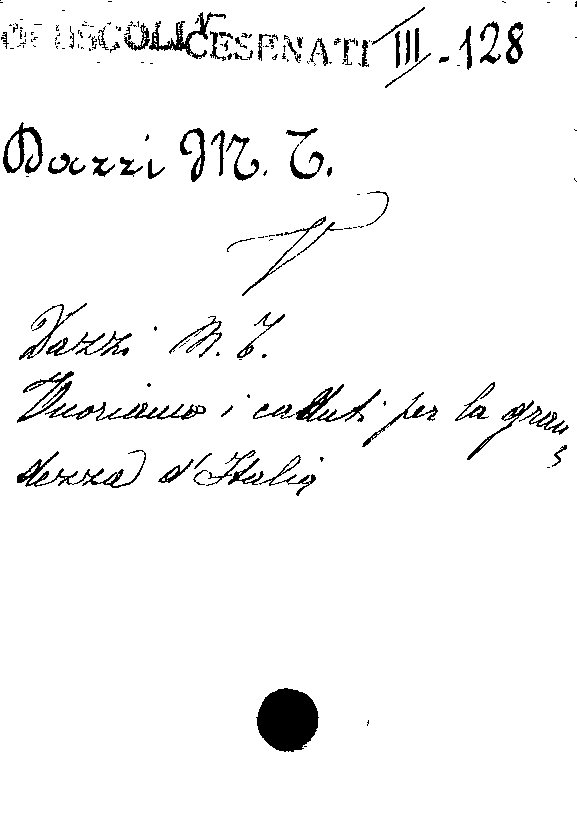 OPUSCOLI CESENATI III - 128
Dazzi M. T.
Dazzi M. T.
Onoriamo i caduti per la gran
dezza d'Italia